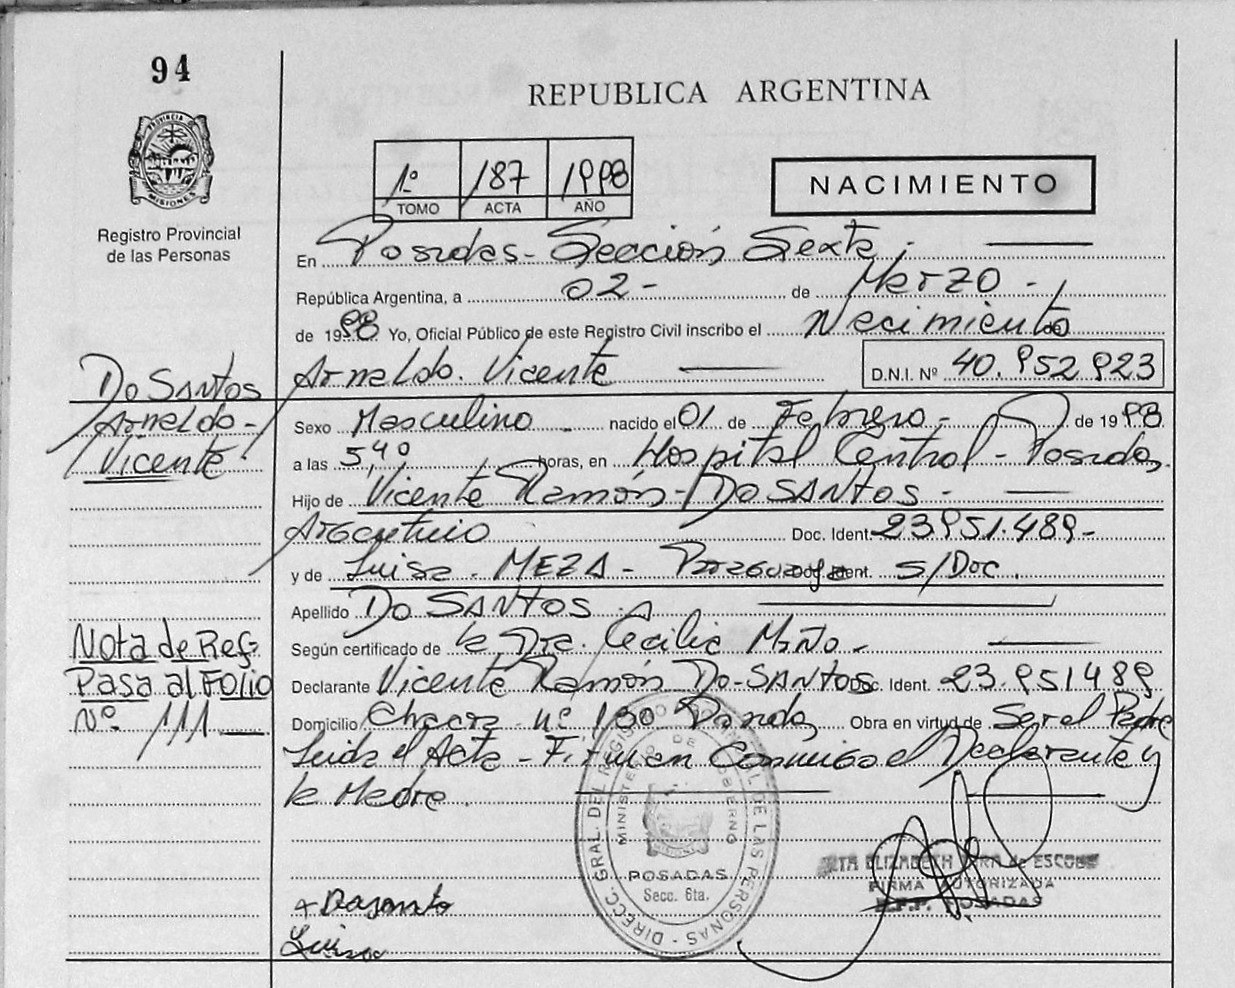 94
REPUBLICA ARGENTINA
PROVINCIA
MISIONES
Registro Provincial
de las Personas
1º 187 1998
TOMO ACTA AÑO
NACIMIENTO
En Posadas - Sección Sexta.
República Argentina, a 02 - de Marzo -
de 1998 Yo, Oficial Público de este Registro Civil inscribo el Nacimiento de
Arnaldo. Vicente D.N.I. Nº 40.952.923
Do SANTos
Arnaldo -
Vicente
Sexo Masculino nacido el 01 de Febrero - de 1998
a las 5,40 horas, en Hospital Central - Posadas
Hijo de Vicente Ramón - Do SANTos -
Argentino Doc. Ident. 23.951.489 -
y de Luisa - MEZA - Paraguaya Ident. S/Doc.
Apellido Do SANTos
Según certificado de la Dra. Cecilia Miño -
Declarante Vicente Ramón Do-SANTos Doc. Ident. 23.951489
Domicilio Chacra nº 130 Posadas Obra en virtud de Ser el Padre
Leida el Acta - Firman Conmigo el Declarante y
la Madre.
Nota de Ref.
Pasa al Folio
Nº 111
DIRECC. GRAL. DEL REGISTRO PROVINCIAL DE LAS PERSONAS
MINISTERIO DE GOBIERNO
MISIONES
POSADAS
Secc. 6ta.
ELIZABETH de ESCOBAR
FIRMA AUTORIZADA
POSADAS
Luisa